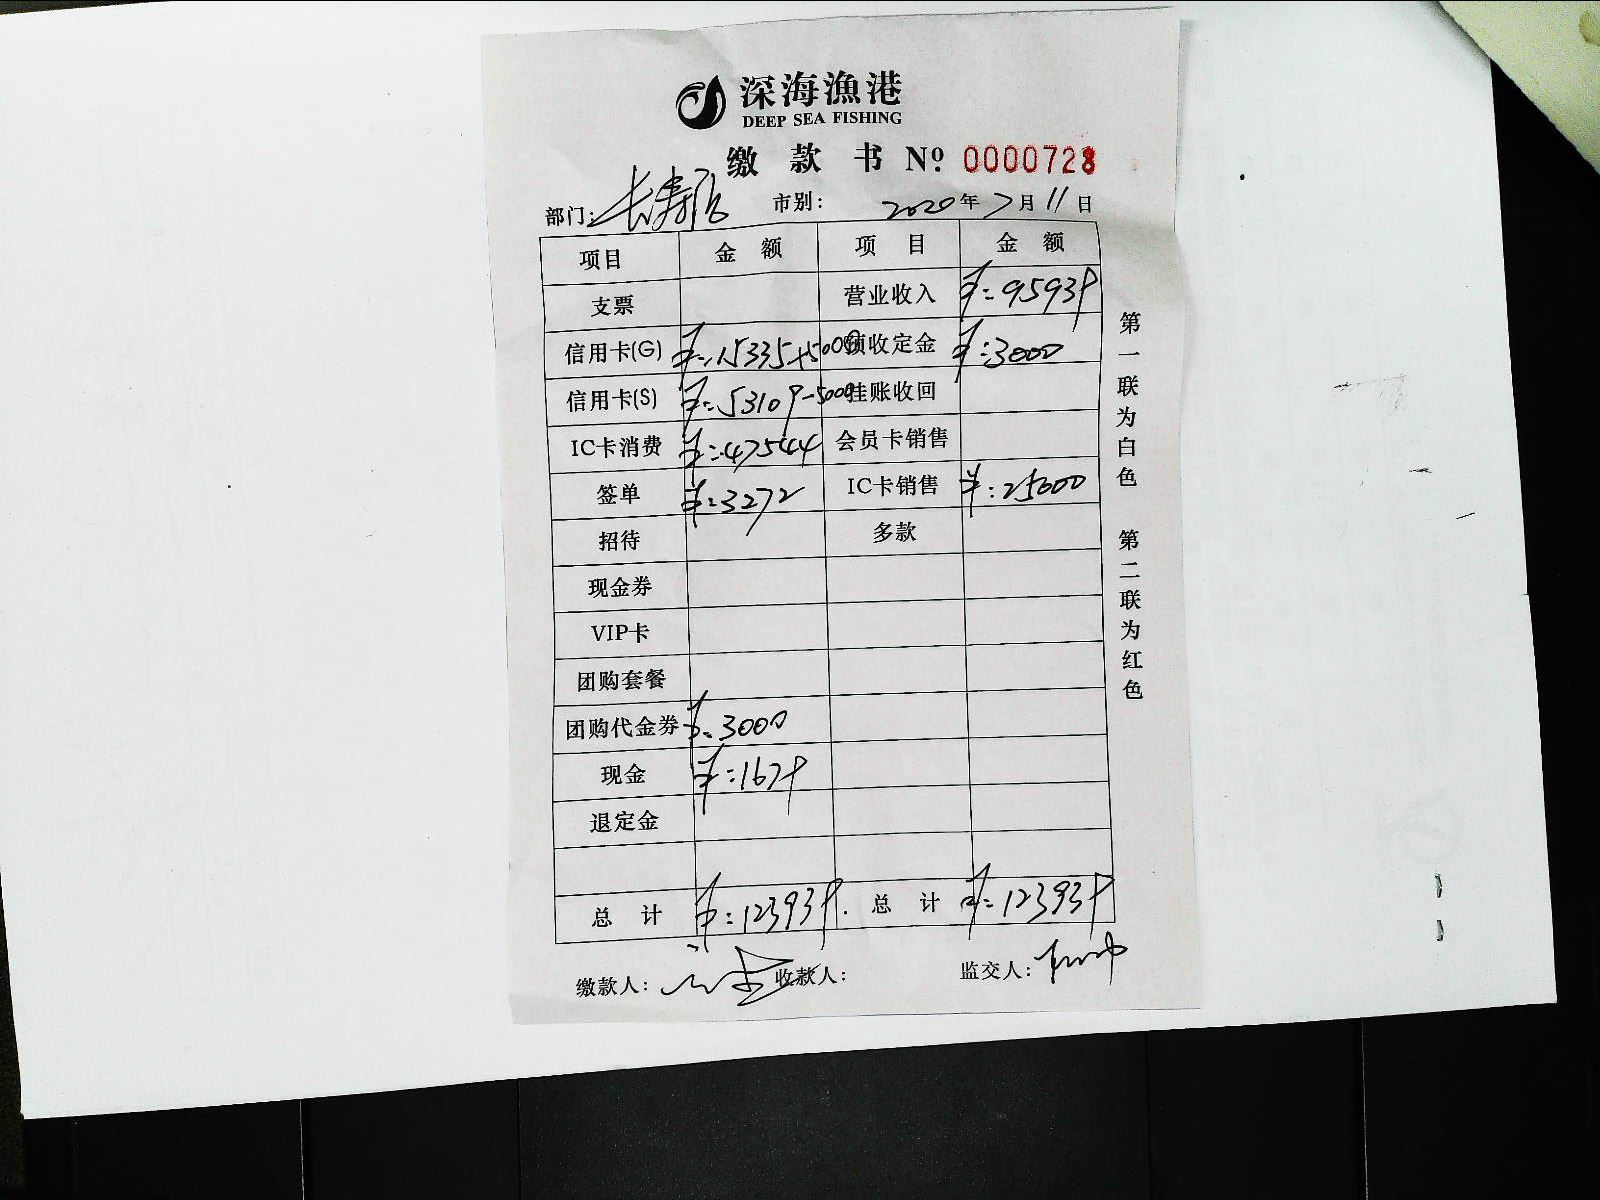 深海漁港
DEEP SEA FISHING
缴款书 Nº 0000728
部门: 长寿店 市别: 2020年7月11日
项目 金额 项目 金额
支票 营业收入 ¥:95939
信用卡(G) ¥:15335+5000 预收定金 ¥:3000
信用卡(S) ¥:53109-5000 挂账收回
IC卡消费 ¥:47544 会员卡销售
签单 ¥:3272 IC卡销售 ¥:25000
招待 多款
现金券
VIP卡
团购套餐
团购代金券 ¥:3000
现金 ¥:1679
退定金
总计 ¥:123939. 总计 ¥:123939
缴款人: 收款人: 监交人:
第一联为白色 第二联为红色